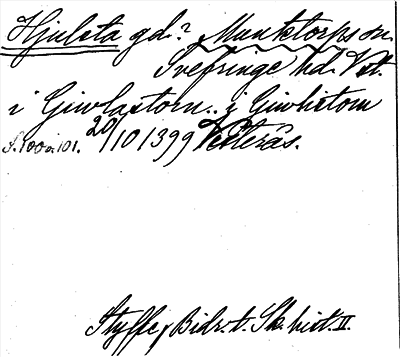 Hjulsta gd.? Munktorps sn.
Snefringe hd. Vstl.
i Giwlastom.. i Giwlistom
S. 100 o. 101. 20/10 1399 Västerås.
Styffe, Bidr. t. Sk. hist. II.